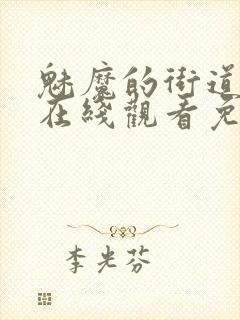 魅魔的街道
在綫觀看免
李光芬